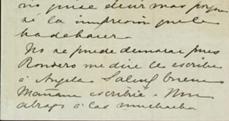 no quise decir mas porque
sé la impresion que le
ha de hacer.
No se puede demorar pues
Rondero me dice le escribe
á Angela
Mañana escribiré. Un
abrazo á las muchachas